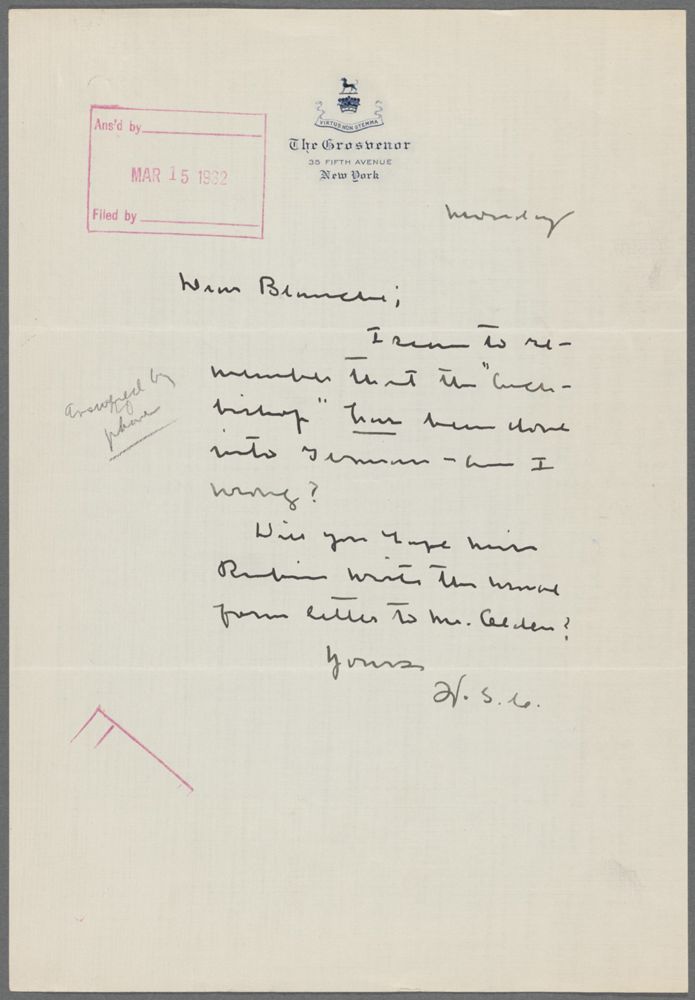 VIRTUS NON STEMMA
The Grosvenor
35 FIFTH AVENUE
New York
Ans'd by
MAR 15 1932
Filed by
Monday
Dear Blanche;
I seem to re-
member that the "Arch-
bishop" has been done
into German - am I
wrong?
answered by
phone
Will you have Miss
Rubin write the usual
form letter to Mr. Alden?
Yours
W. S. C.